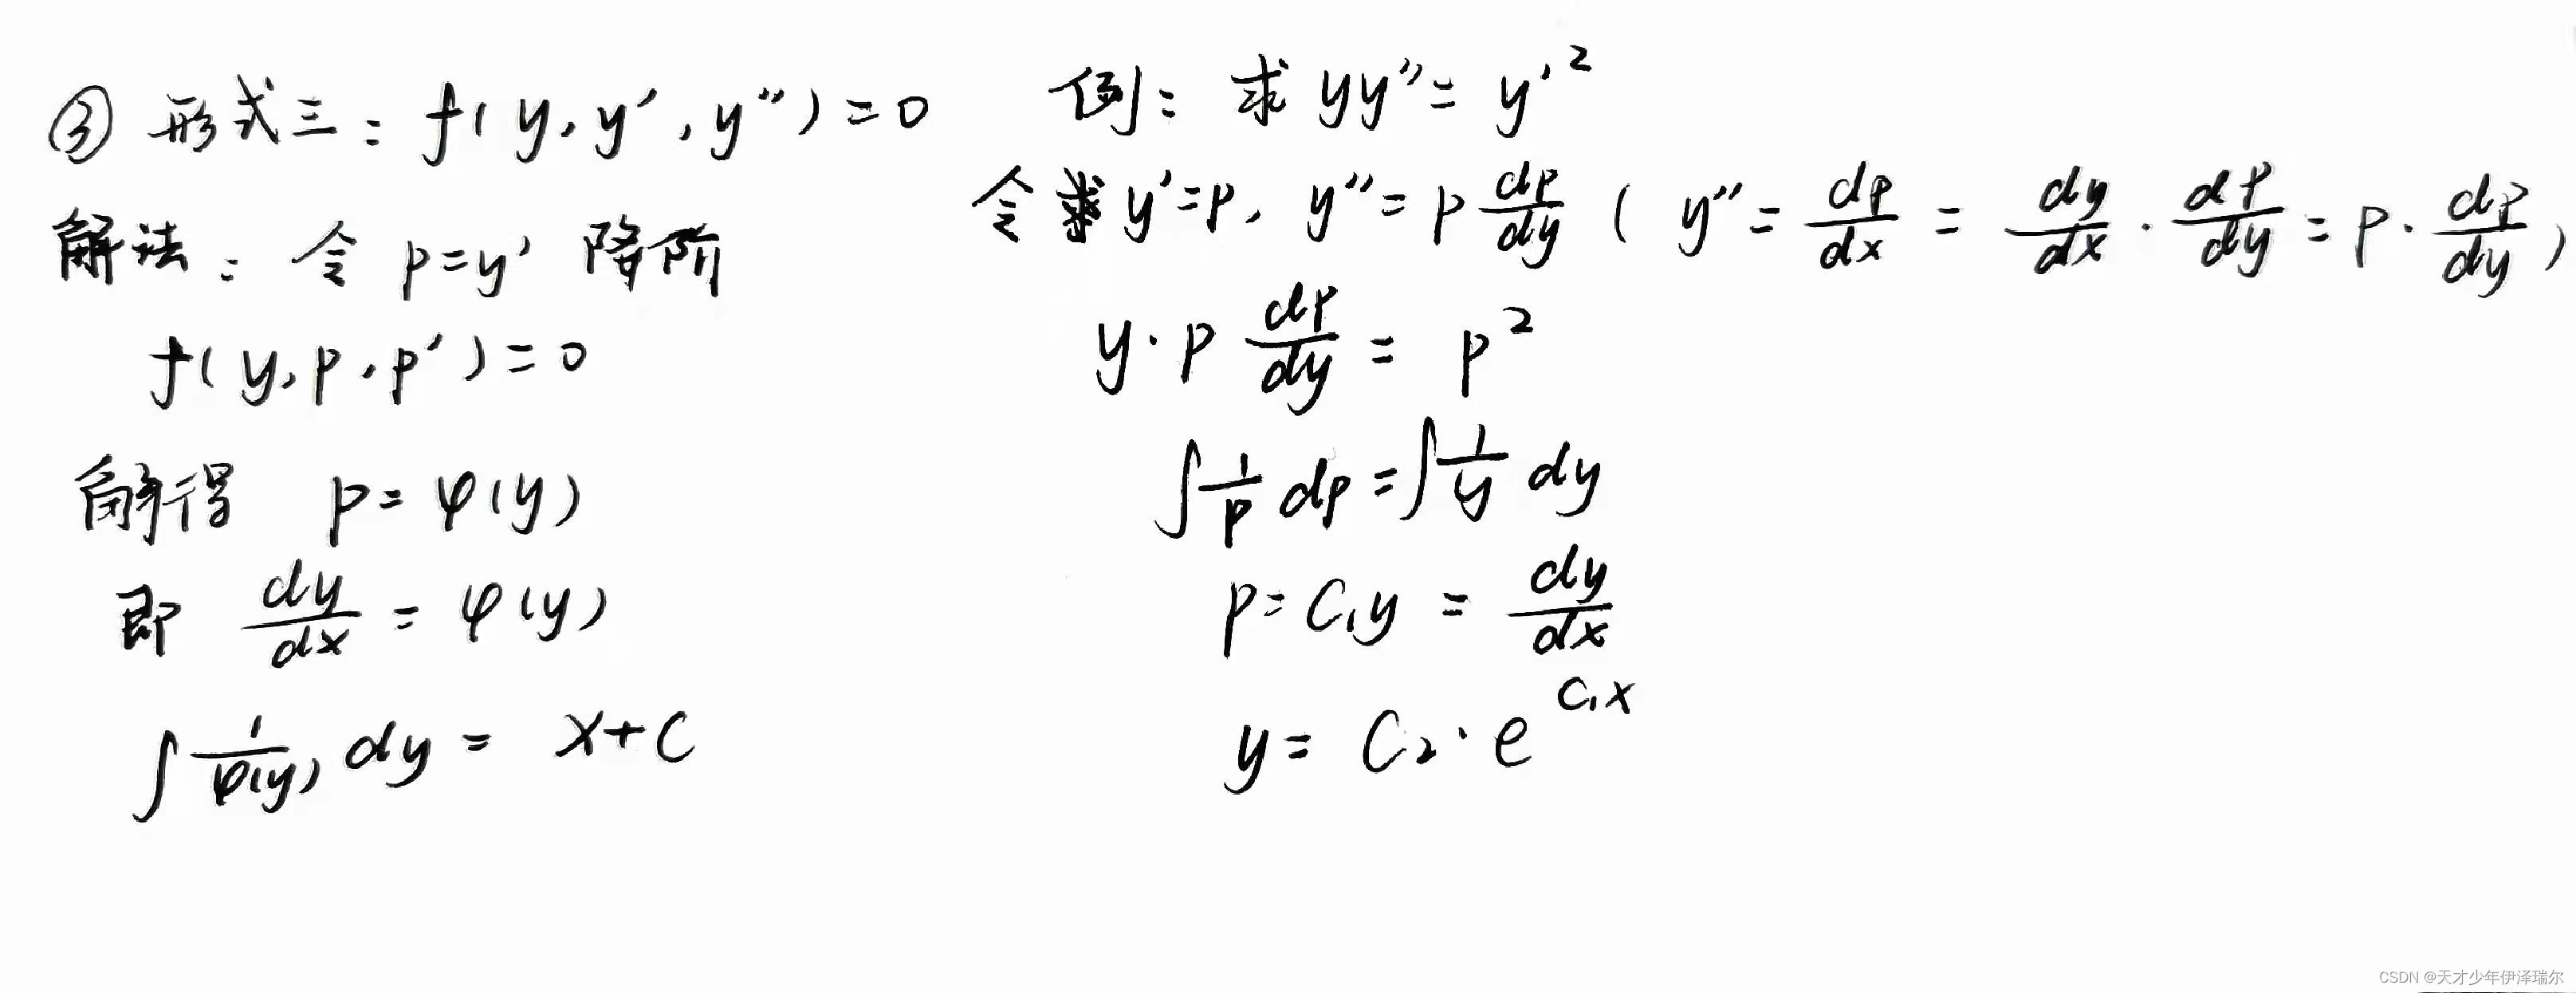 ③ 形式三：f(y, y', y'')=0
解法：令 p=y' 降阶
f(y, p, p')=0
解得 p=φ(y)
即 dy/dx = φ(y)
∫ 1/φ(y) dy = x+C
例：求 yy''= y'²
令 y'=p, y''= p dp/dy ( y''= dp/dx = dy/dx · dp/dy = p · dp/dy )
y·p dp/dy = p²
∫ 1/p dp = ∫ 1/y dy
p= C₁y = dy/dx
y= C₂·e^{C₁x}
CSDN @天才少年伊泽瑞尔